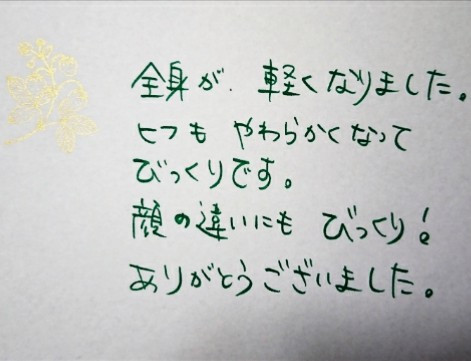 全身が 軽くなりました。
ヒフも やわらかくなって
びっくりです。
顔の違いにも びっくり!。
ありがとうございました。